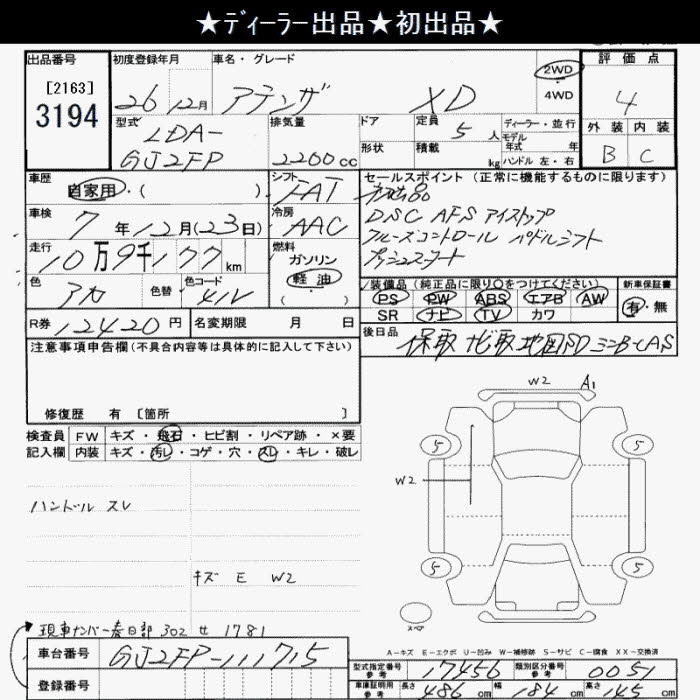 ★ディーラー出品★初出品★
出品番号
[2163]
3194
初度登録年月
26年12月
車名・グレード
アテンザ XD
2WD
4WD
評価点
4
外装 内装
B C
型式
LDA-
GJ2FP
排気量
2200cc
ドア
形状
定員 5人
積載 kg
ディーラー・並行
モデル年式 年
ハンドル 左・右
車歴
自家用・( )
シフト
FAT
セールスポイント(正常に機能するものに限ります)
初出品
DSC AFS アイストップ
クルーズコントロール パドルシフト
プッシュスタート
車検
7年12月(23日)
冷房
AAC
走行
10万9千177km
燃料
ガソリン
軽油
色
アカ
色替
色コード
41V
装備品(純正品に限り○をつけてください)
PS PW ABS エアB AW
SR ナビ TV カワ
新車保証書
有・無
R券 12420円
名変期限 月 日
後日品
保取 ナビ取 地図SD
注意事項申告欄(不具合内容等は具体的に記入して下さい)
修復歴 有 [箇所 ]
検査員 FW キズ・飛石・ヒビ割・リペア跡・×要
記入欄 内装 キズ・汚レ・コゲ・穴・スレ・キレ・破レ
ハンドル スレ
キズ E W2
W2 A1
5 5
W2
5 5
スペア
A-キズ E-エクボ U-凹み W-補修跡 S-サビ C-腐食 XX-交換済
現車ナンバー春日部 302 せ 1781
車台番号 GJ2FP-111715
登録番号
型式指定番号 参考 17456
類別区分番号 参考 0051
車庫証明用 参考 長さ 486cm 幅 184cm 高さ 145cm